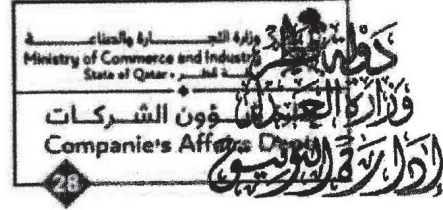 وزارة التجـــارة والصناعـــة
Ministry of Commerce and Industry
State of Qatar • دولة قطـر
شـؤون الشـركـات
Companie's Affairs Dept
28
دولة قطر
وزارة العدل
إدارة التوثيق